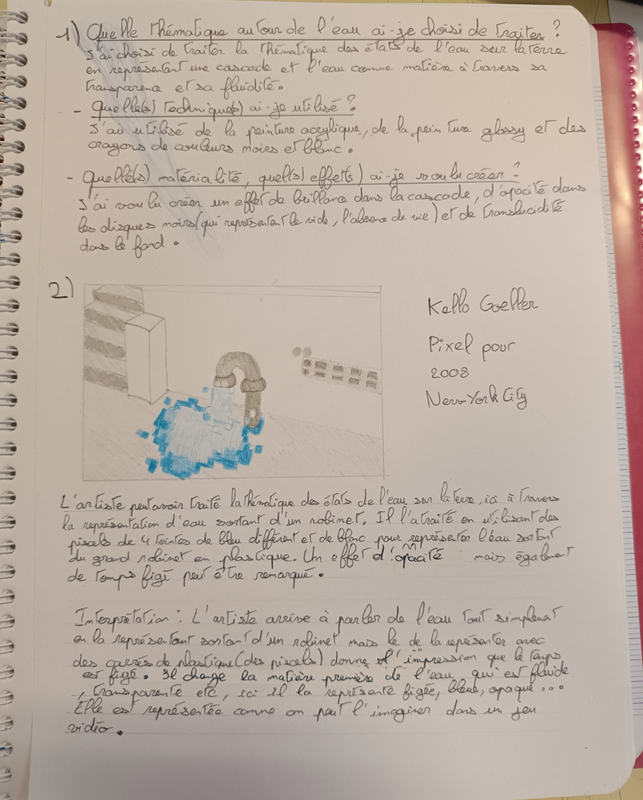 1) Quelle Thématique autour de l'eau ai-je choisi de traiter ?
J'ai choisi de traiter la thématique des états de l'eau sur la terre
en représentant une cascade et l'eau comme matière à travers sa
transparence et sa fluidité.
- Quelle(s) technique(s) ai-je utilisé ?
J'ai utilisé de la peinture acrylique, de la peinture glossy et des
crayons de couleurs noires et blanc.
- Quelle(s) matérialité, quel(s) effet(s) ai-je voulu créer ?
J'ai voulu créer un effet de brillance dans la cascade, d'opacité dans
les disques noirs (qui représentent le vide, l'absence de vie) et de translucidité
dans le fond.
2)
Kello Goeller
Pixel pour
2008
New York City
L'artiste peut avoir traité la thématique des états de l'eau sur la terre, ici à travers
la représentation d'eau sortant d'un robinet. Il l'a traité en utilisant des
pixels de 4 teintes de bleu différent et de blanc pour représenter l'eau sortant
du grand robinet en plastique. Un effet d'opacité mais également
de temps figé peut être remarqué.
Interprétation : L'artiste arrive à parler de l'eau tout simplement
en la représentant sortant d'un robinet mais le de la représenter avec
des carrés de plastique (des pixels) donne l'impression que le temps
est figé. Il change la matière première de l'eau, qui est fluide
, transparente etc, ici il la représente figée, bleue, opaque...
Elle est représentée comme on peut l'imaginer dans un jeu
vidéo.